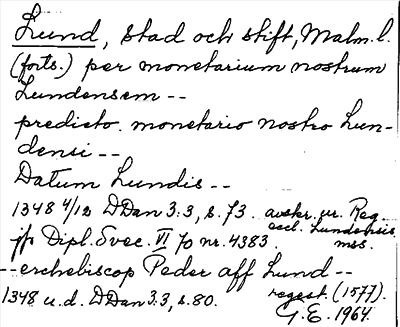 Lund, stad och stift, Malm. l.
(forts.) per monetarium nostrum
Lundensem --
predicto monetario nostro Lun-
densi --
Datum Lundis --
1348 4/12 DDan 3:3, s. 73. avskr. ur Reg.
eccl. Lundensis
jfr Dipl. Svec. VI 70 nr. 4383. mss.
-- erchebiscop Peder aff Lund --
1348 u.d. DDan 3:3, s. 80. regest (1577).
G.E. 1964.